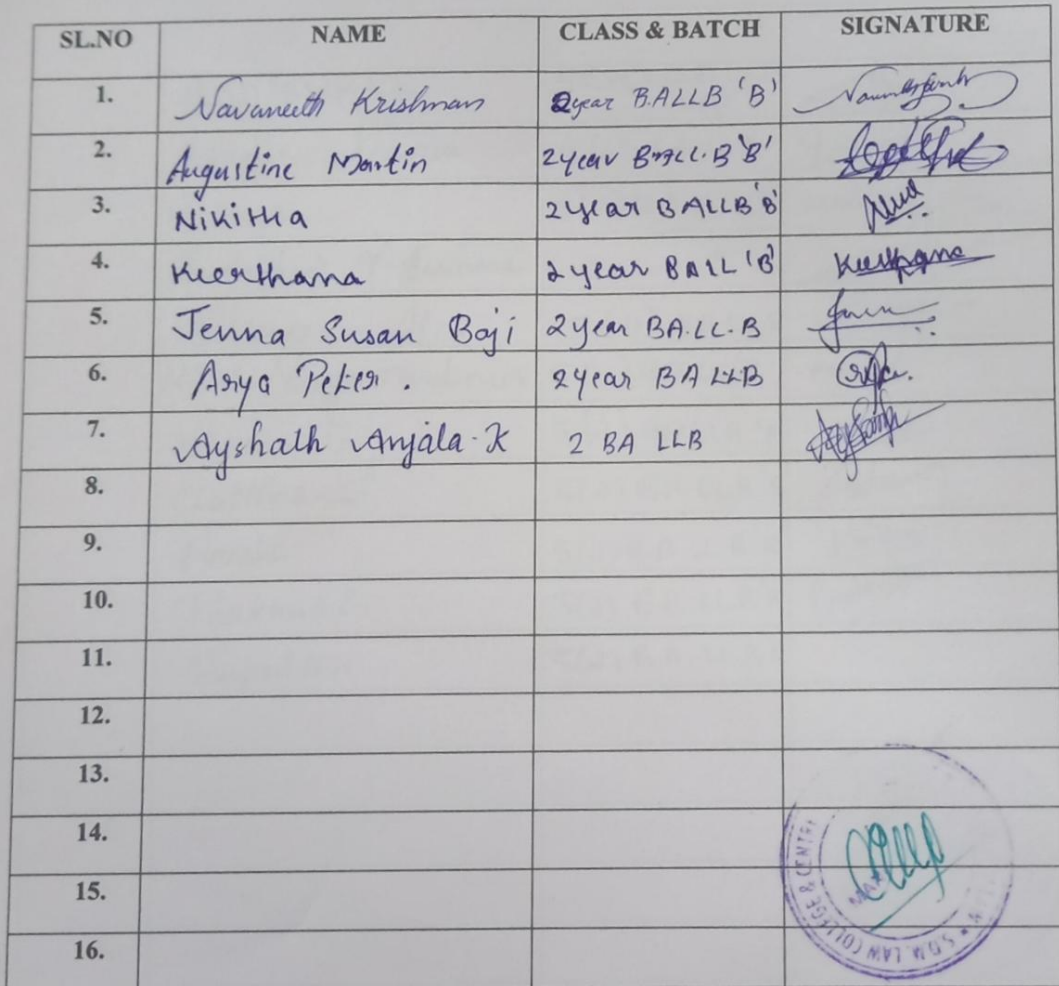 SL.NO NAME CLASS & BATCH SIGNATURE
1. Navaneeth Krishnan 2year B.A LLB 'B'
2. Augustine Martin 2year BALL.B 'B'
3. Nikitha 2year BALLB 'B'
4. Keerthana 2year BALL 'B' Keerthana
5. Jenna Susan Boji 2year BA.LL.B
6. Arya Peter. 2year BA LLB
7. Ayshath Anjala.K 2 BA LLB
8.
9.
10.
11.
12.
13.
14.
15.
16.
S.D.M. LAW COLLEGE & CENTRE